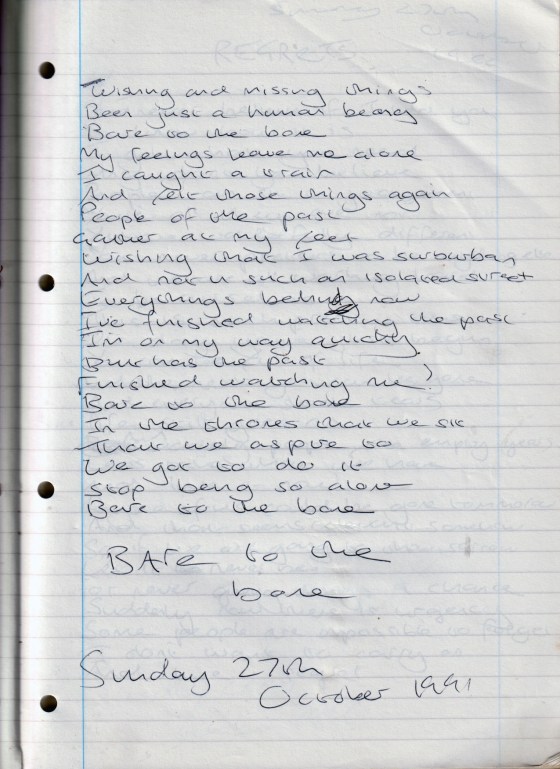 Wishing and missing things
Been just a human being
Bare to the bone
My feelings leave me alone
I caught a train
And felt those things again
People of the past
Gather at my feet
Wishing that I was surburban
And not in such an isolated street
Everythings behind now
I've finished watching the past
I'm on my way quickly
But has the past
Finished watching me?
Bare to the bone
In the thrones that we sit
That we aspire to
We got to do it
Stop being so alone
Bare to the bone
BAre to the
bone
Sunday 27th
October 1991
REGRETS